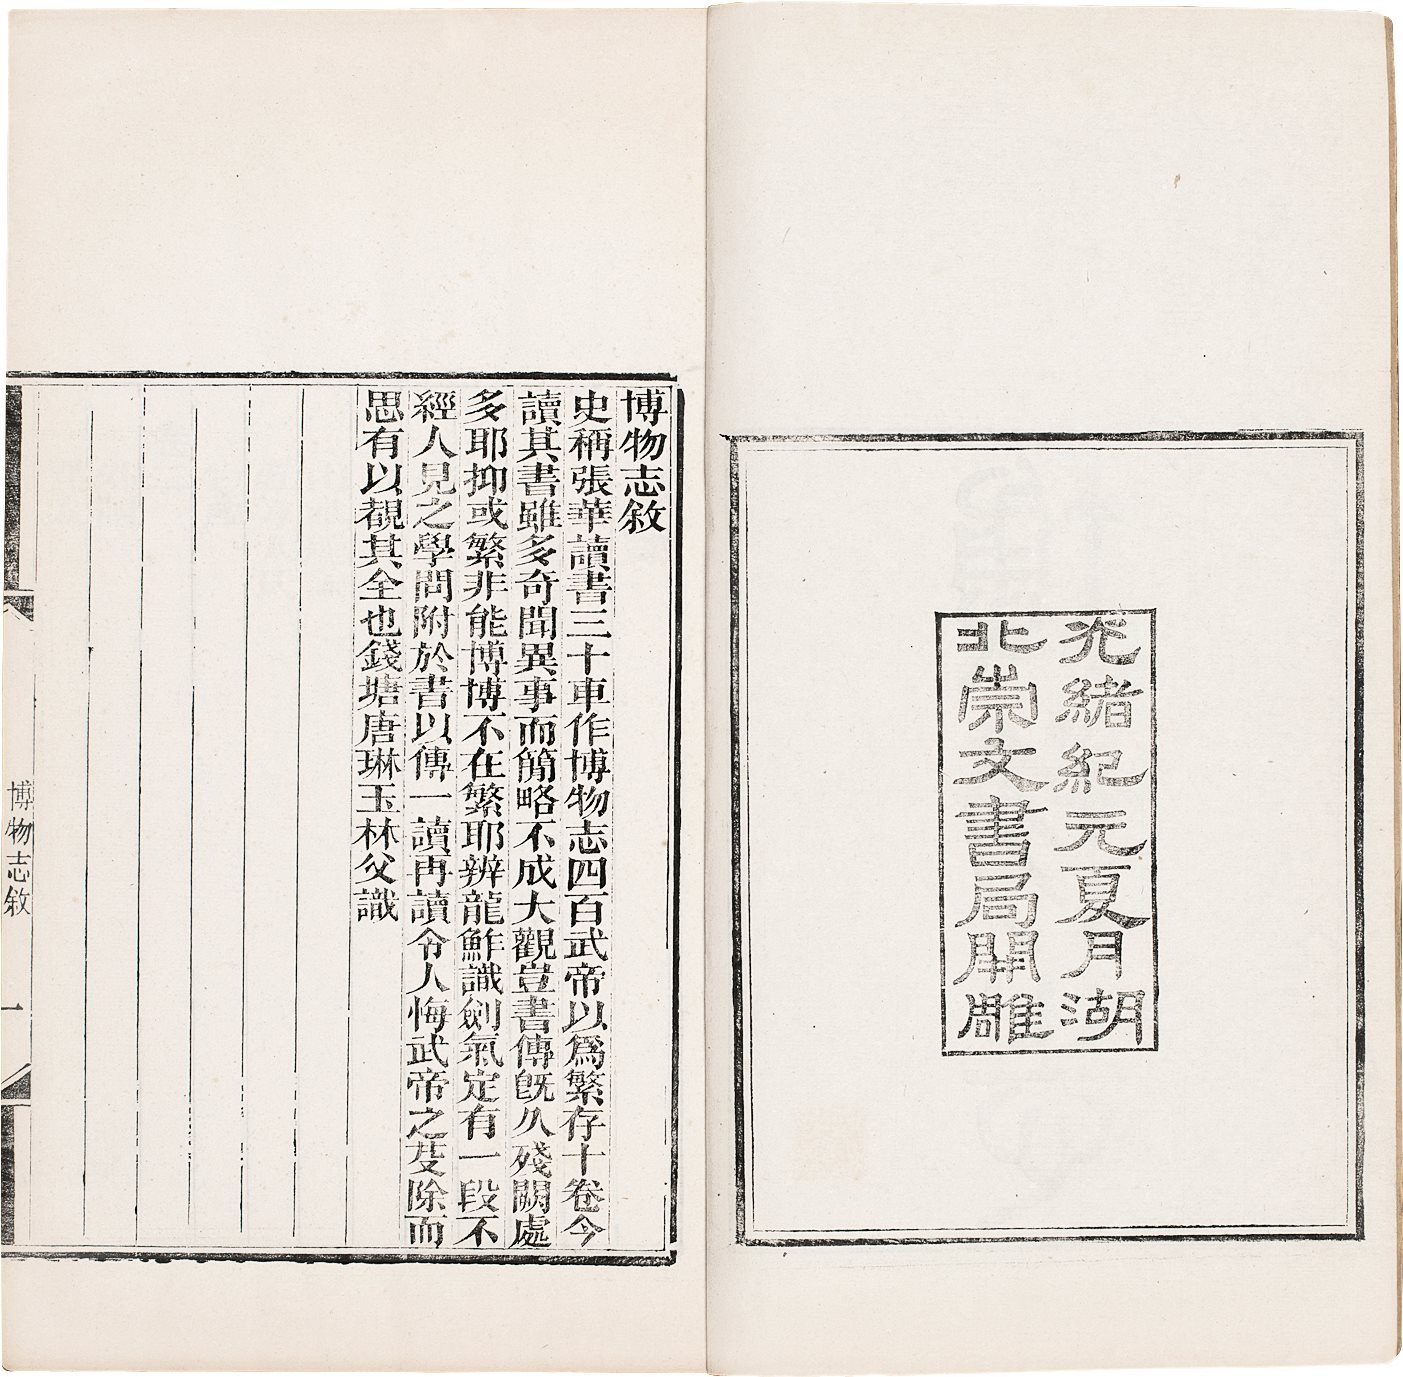 光緒紀元夏月湖
北崇文書局開雕
博物志敘
史稱張華讀書三十車作博物志四百武帝以爲繁存十卷今
讀其書雖多奇聞異事而簡略不成大觀豈書傳旣久殘闕處
多耶抑或繁非能博博不在繁耶辨龍鮓識劍氣定有一段不
經人見之學問附於書以傳一讀再讀令人悔武帝之芟除而
思有以覩其全也錢塘唐琳玉林父識
博物志敘
一